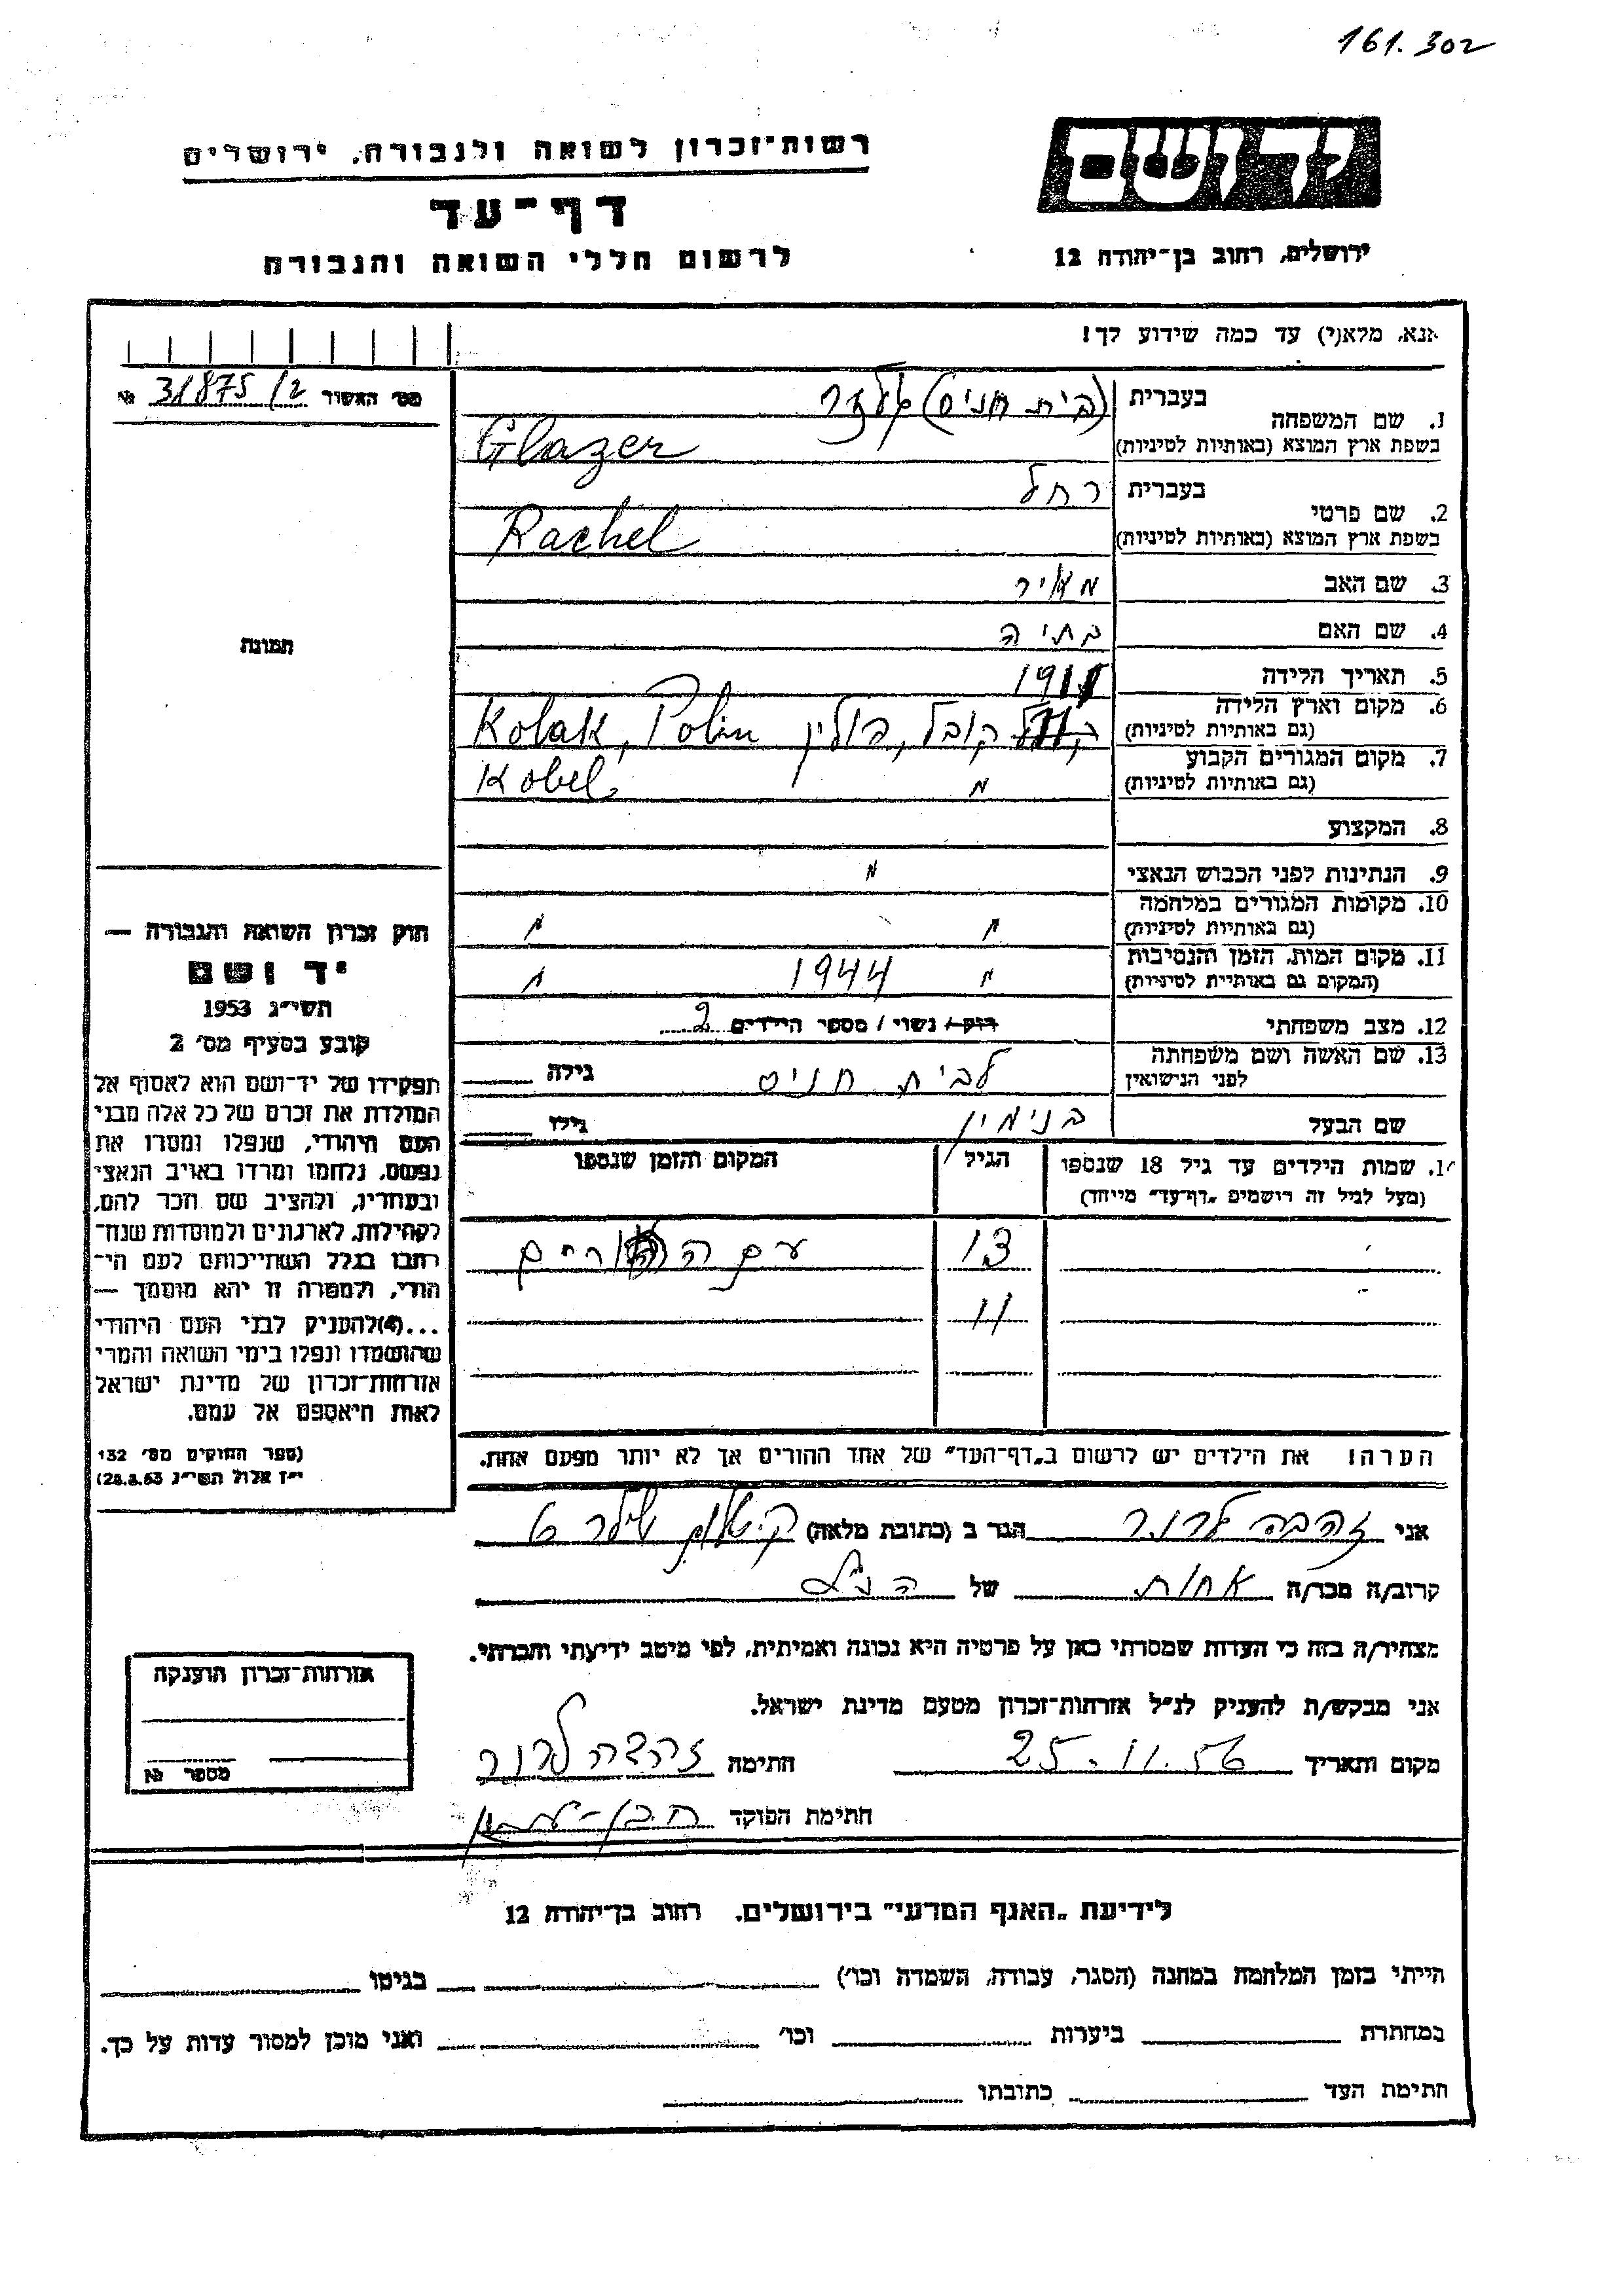 161.302
רשות-זכרון לשואה ולגבורה, ירושלים
יד ושם
דף-עד
לרשום חללי השואה והגבורה
ירושלים, רחוב בן-יהודה 12
אנא, מלא(י) עד כמה שידוע לך!
מס' האשור 31875/2 №
1. שם המשפחה בעברית (בית חניס) גלזר
בשפת ארץ המוצא (באותיות לטיניות) Glazer
2. שם פרטי בעברית רחל
בשפת ארץ המוצא (באותיות לטיניות) Rachel
3. שם האב מאיר
4. שם האם בתיה
תמונה
5. תאריך הלידה 1911
6. מקום וארץ הלידה
(גם באותיות לטיניות) קובל, פולין Kolak, Polin
7. מקום המגורים הקבוע
(גם באותיות לטיניות) " Kobel
8. המקצוע
9. הנתינות לפני הכבוש הנאצי "
10. מקומות המגורים במלחמה
(גם באותיות לטיניות) " "
11. מקום המות, הזמן והנסיבות
(המקום גם באותיות לטיניות) " 1944 "
12. מצב משפחתי רווק / נשוי / מספר הילדים 2
13. שם האשה ושם משפחתה
לפני הנישואין לבית חניס גילה
שם הבעל בנימין גילו
14. שמות הילדים עד גיל 18 שנספו הגיל המקום והזמן שנספו
(מעל לגיל זה רושמים "דף-עד" מיוחד)
13 עם ההורים
11
הערה! את הילדים יש לרשום ב"דף-העד" של אחד ההורים אך לא יותר מפעם אחת.
חוק זכרון השואה והגבורה —
יד ושם
תשי"ג 1953
קובע בסעיף מס' 2
תפקידו של יד-ושם הוא לאסוף אל
המולדת את זכרם של כל אלה מבני
העם היהודי, שנפלו ומסרו את
נפשם, נלחמו ומרדו באויב הנאצי
ובעוזריו, ולהציב שם וזכר להם,
לקהילות, לארגונים ולמוסדות שנח-
רבו בגלל השתייכותם לעם הי-
הודי, ולמטרה זו יהא מוסמך —
...(4) להעניק לבני העם היהודי
שהושמדו ונפלו בימי השואה והמרי
אזרחות-זכרון של מדינת ישראל
לאות היאספם אל עמם.
(ספר החוקים מס' 132
י"ז אלול תשי"ג 28.8.53)
אני זהבה לרנר הגר ב (כתובת מלאה)
קרוב/ה מכר/ה אחות של הנ"ל
מצהיר/ה בזה כי העדות שמסרתי כאן על פרטיה היא נכונה ואמיתית, לפי מיטב ידיעתי והכרתי.
אני מבקש/ת להעניק לנ"ל אזרחות-זכרון מטעם מדינת ישראל.
מקום ותאריך 25.11.56 חתימה זהבה לרנר
חתימת הפוקד
אזרחות-זכרון הוענקה
מספר №
לידיעת "האגף המדעי" בירושלים, רחוב בן-יהודה 12
הייתי בזמן המלחמה במחנה (הסגר, עבודה, השמדה וכו') בגיטו
במחתרת ביערות וכו' ואני מוכן למסור עדות על כך.
חתימת העד כתובתו